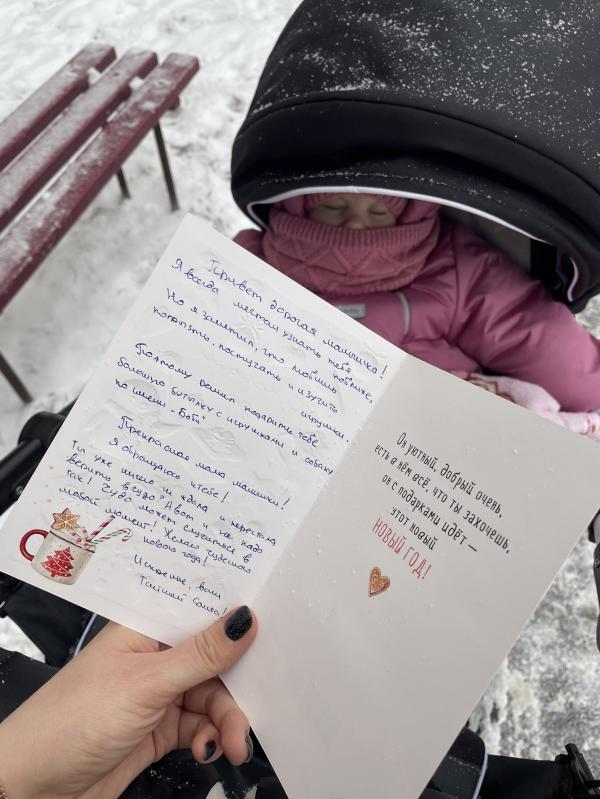 Привет дорогая малышка!
Я всегда мечтал узнать тебя
поближе,
Но я заметил, что любишь
попрыгать, постучать и изучить
игрушки.
Поэтому решил подарить тебе
большую бутылку с игрушками и собаку
по имени - Боб!
Прекрасная мама малышки!
Я обращаюсь к тебе!
Ты уже ничего не ждала и перестала
верить в чудо? А вот и не надо
так! Чудо может случиться в
любой момент! Желаю чудесного
нового года!
Искренне, ваш
Тайный Санта!
Он уютный, добрый очень,
есть в нём всё, что ты захочешь,
он с подарками идёт —
этот новый
НОВЫЙ ГОД!